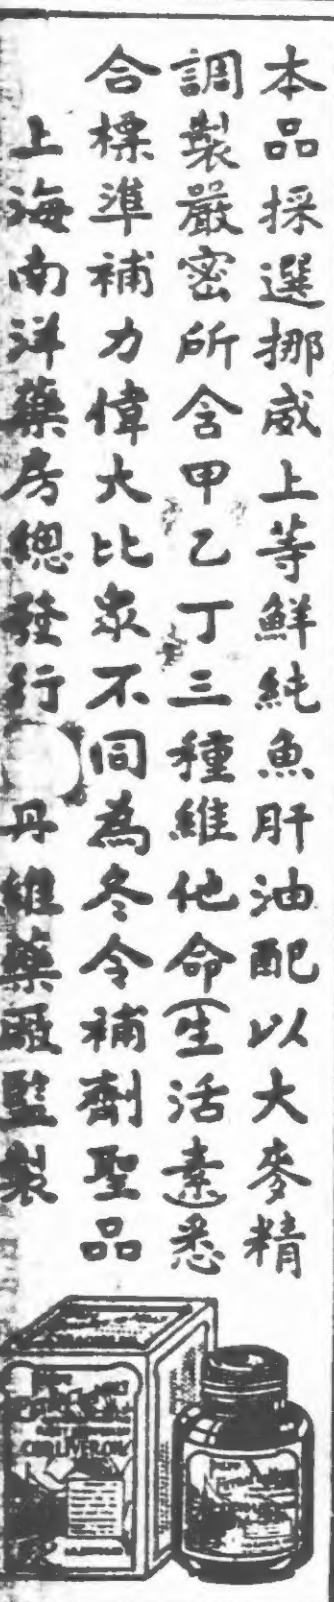 本品採選挪威上等鮮純魚肝油配以大麥精
調製嚴密所含甲乙丁三種維他命(生活素)悉
合標準補力偉大比衆不同為冬令補劑聖品
上海南洋藥房總發行 丹維藥廠監製